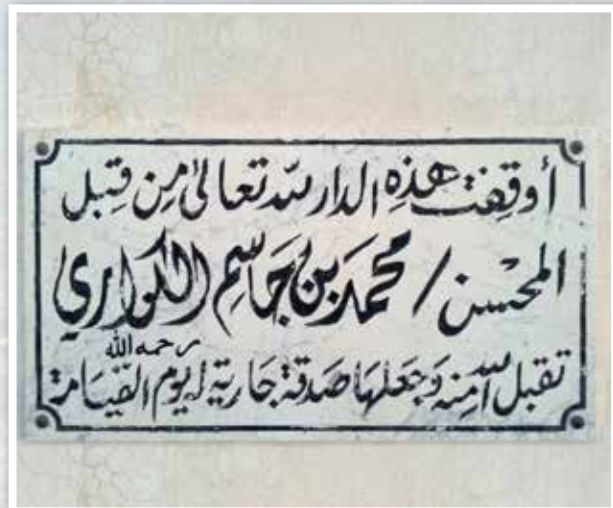 أوقفت هذه الدار لله تعالى من قبل
المحسن / محمد بن جاسم الكواري
رحمه الله
تقبل الله منه وجعلها صدقة جارية ليوم القيامة